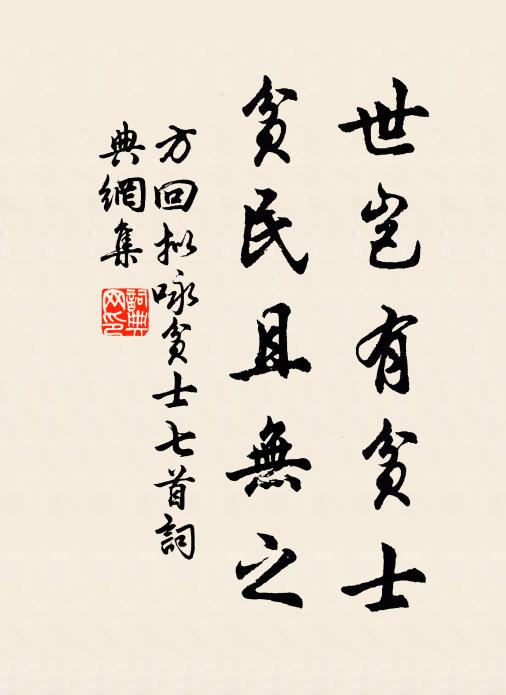 世岂有贫士
贫民且無之
方回拟咏贫士七首詞
典網集
詞典
网印